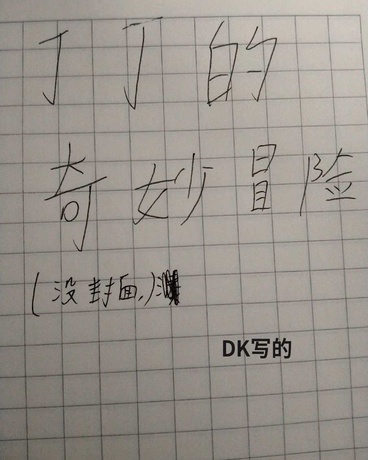 丁丁的
奇妙冒险
(没封面,)
DK写的